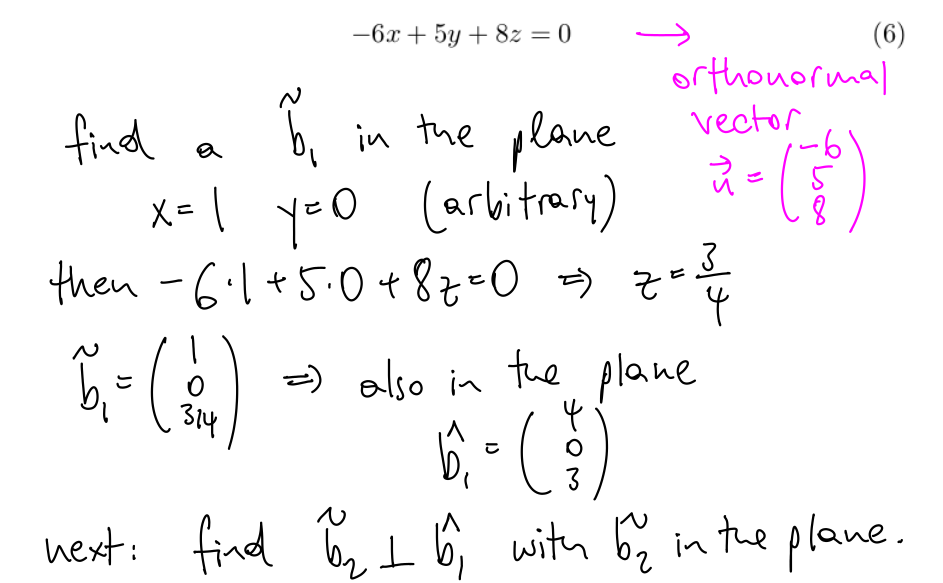 -6x + 5y + 8z = 0 → (6)
orthonormal
vector
n⃗ = (-6 5 8)
find a b̃₁ in the plane
x = 1 y = 0 (arbitrary)
then -6·1 + 5·0 + 8z = 0 ⇒ z = 3/4
b̃₁ = (1 0 3/4) ⇒ also in the plane
b̂₁ = (4 0 3)
next: find b̃₂ ⊥ b̂₁ with b̃₂ in the plane.